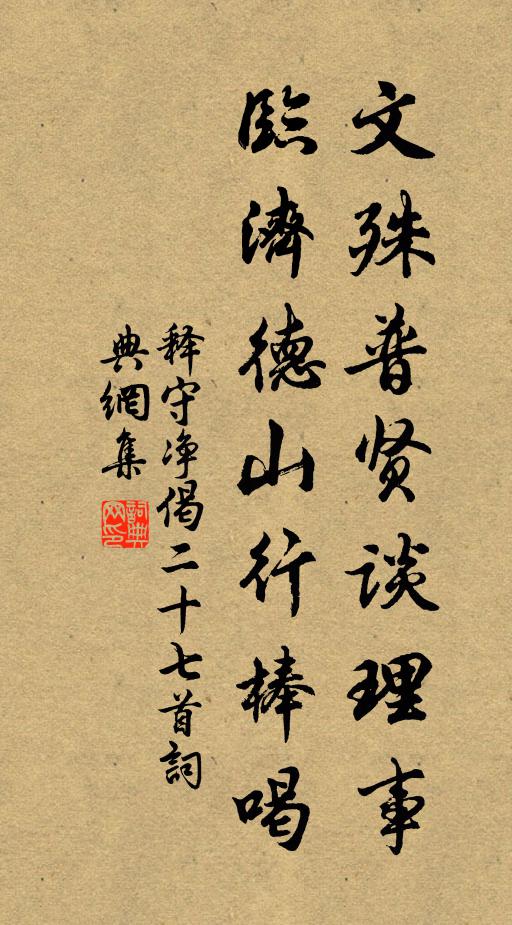 文殊普贤谈理事
臨濟德山行棒喝
释守净偈二十七首詞
典網集
詞典
网印